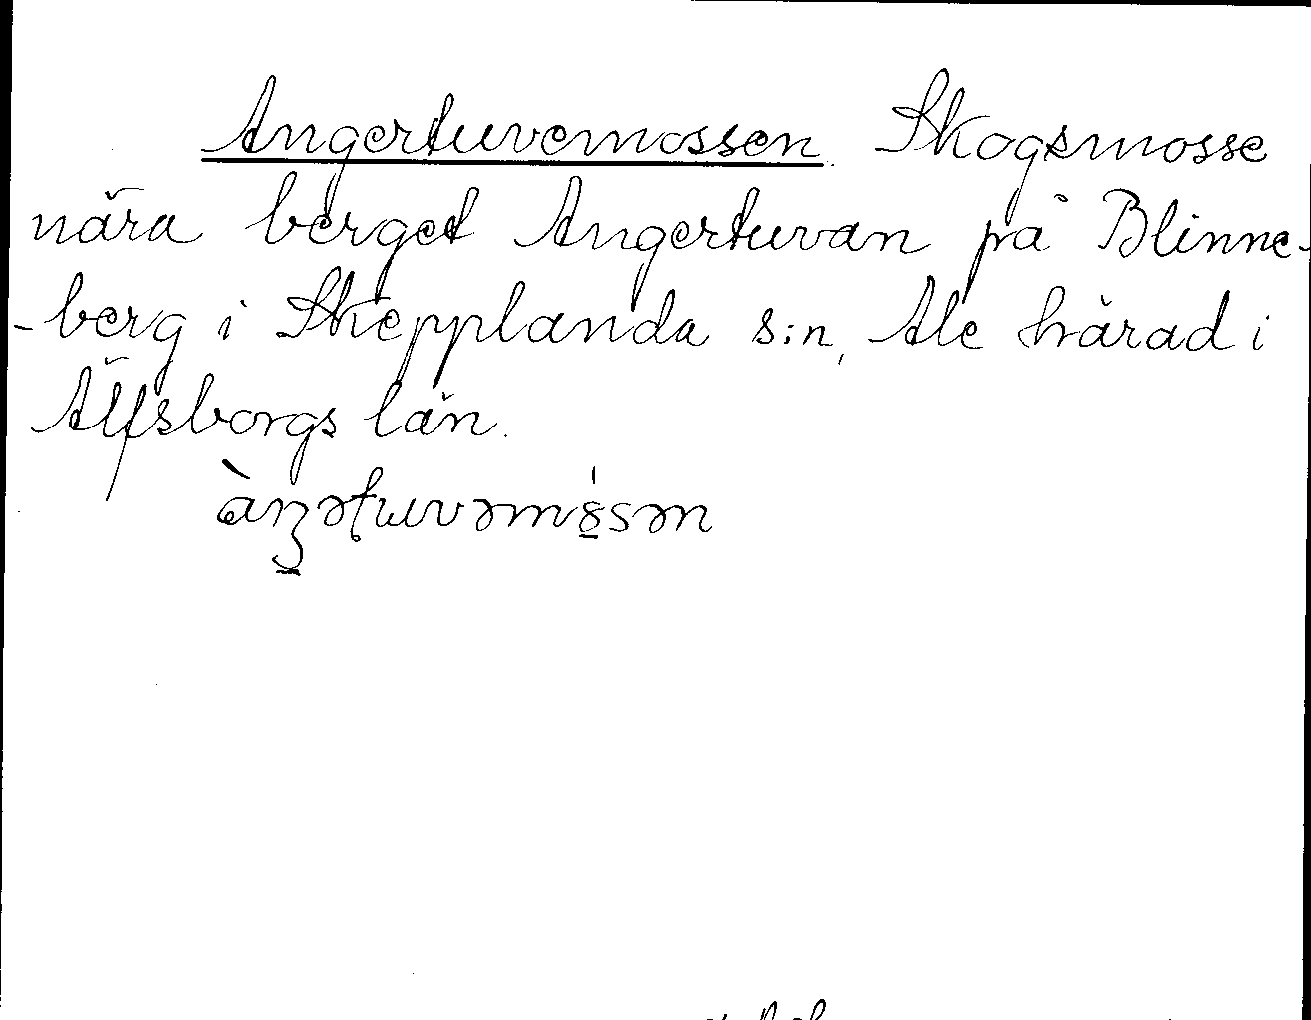 Angertuvemossen. Skogsmosse
nära berget Angertuvan på Blinne-
-berg i Skepplanda s:n, Ale härad i
Älfsborgs län.